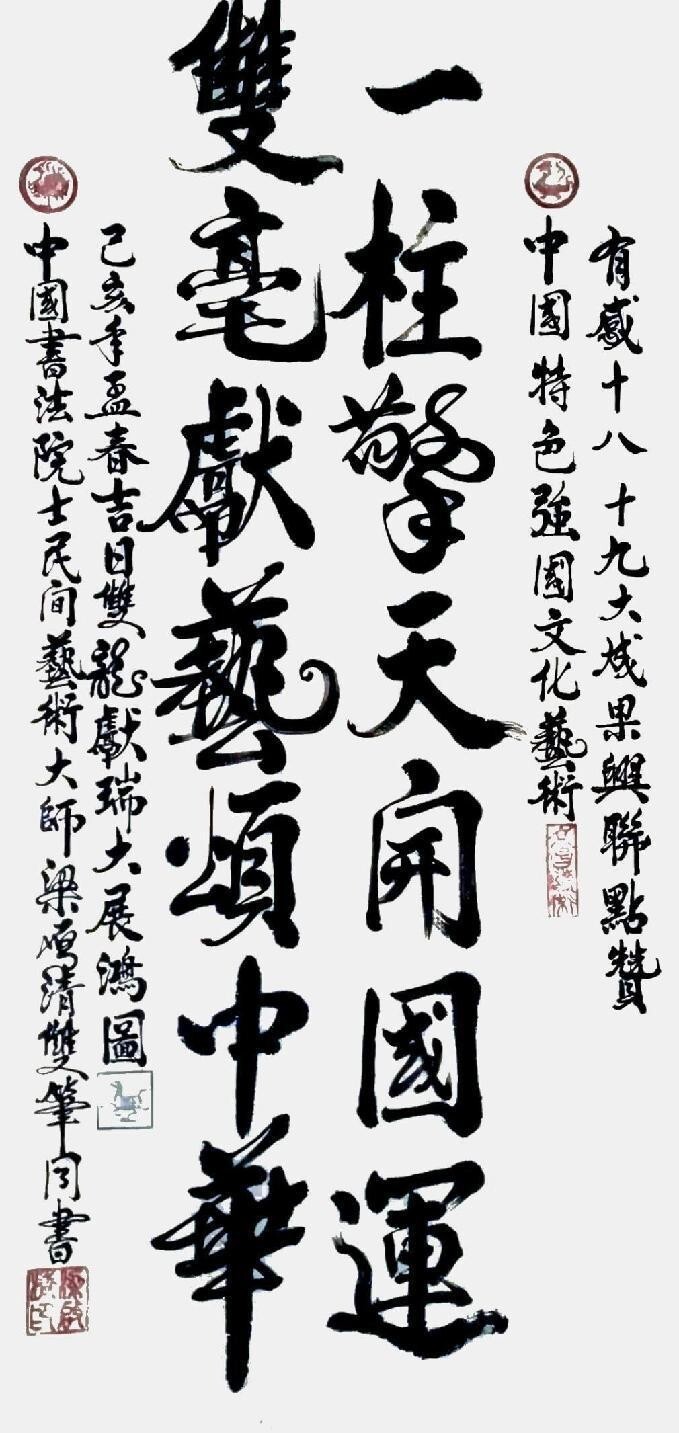 有感十八十九大成果興聯點贊
中國特色強國文化藝術
一柱擎天開國運
雙毫獻藝頌中華
己亥年孟春吉日雙龍獻瑞大展鴻圖
中國書法院士民间藝術大師梁清雙筆同書